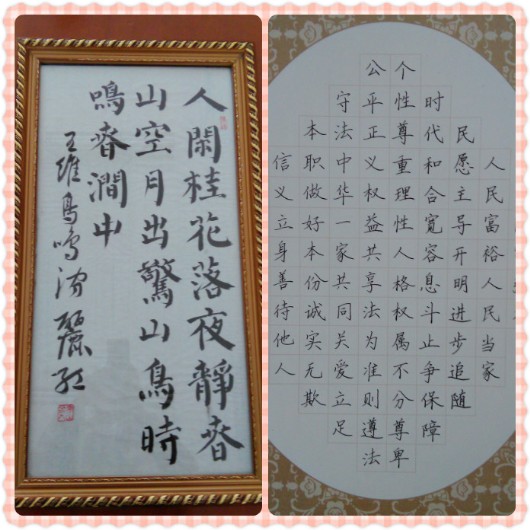 人閑桂花落夜靜春
山空月出驚山鳥時
鳴春澗中
王維鳥鳴澗麗
人民富裕人民当家
民愿主导开明进步追随
时代和合宽容息斗止争保障
个性尊重理性人格权属不分尊卑
公平正义权益共享法为准则遵法
守法中华一家共同关爱立足
本职做好本份诚实无欺
信义立身善待他人